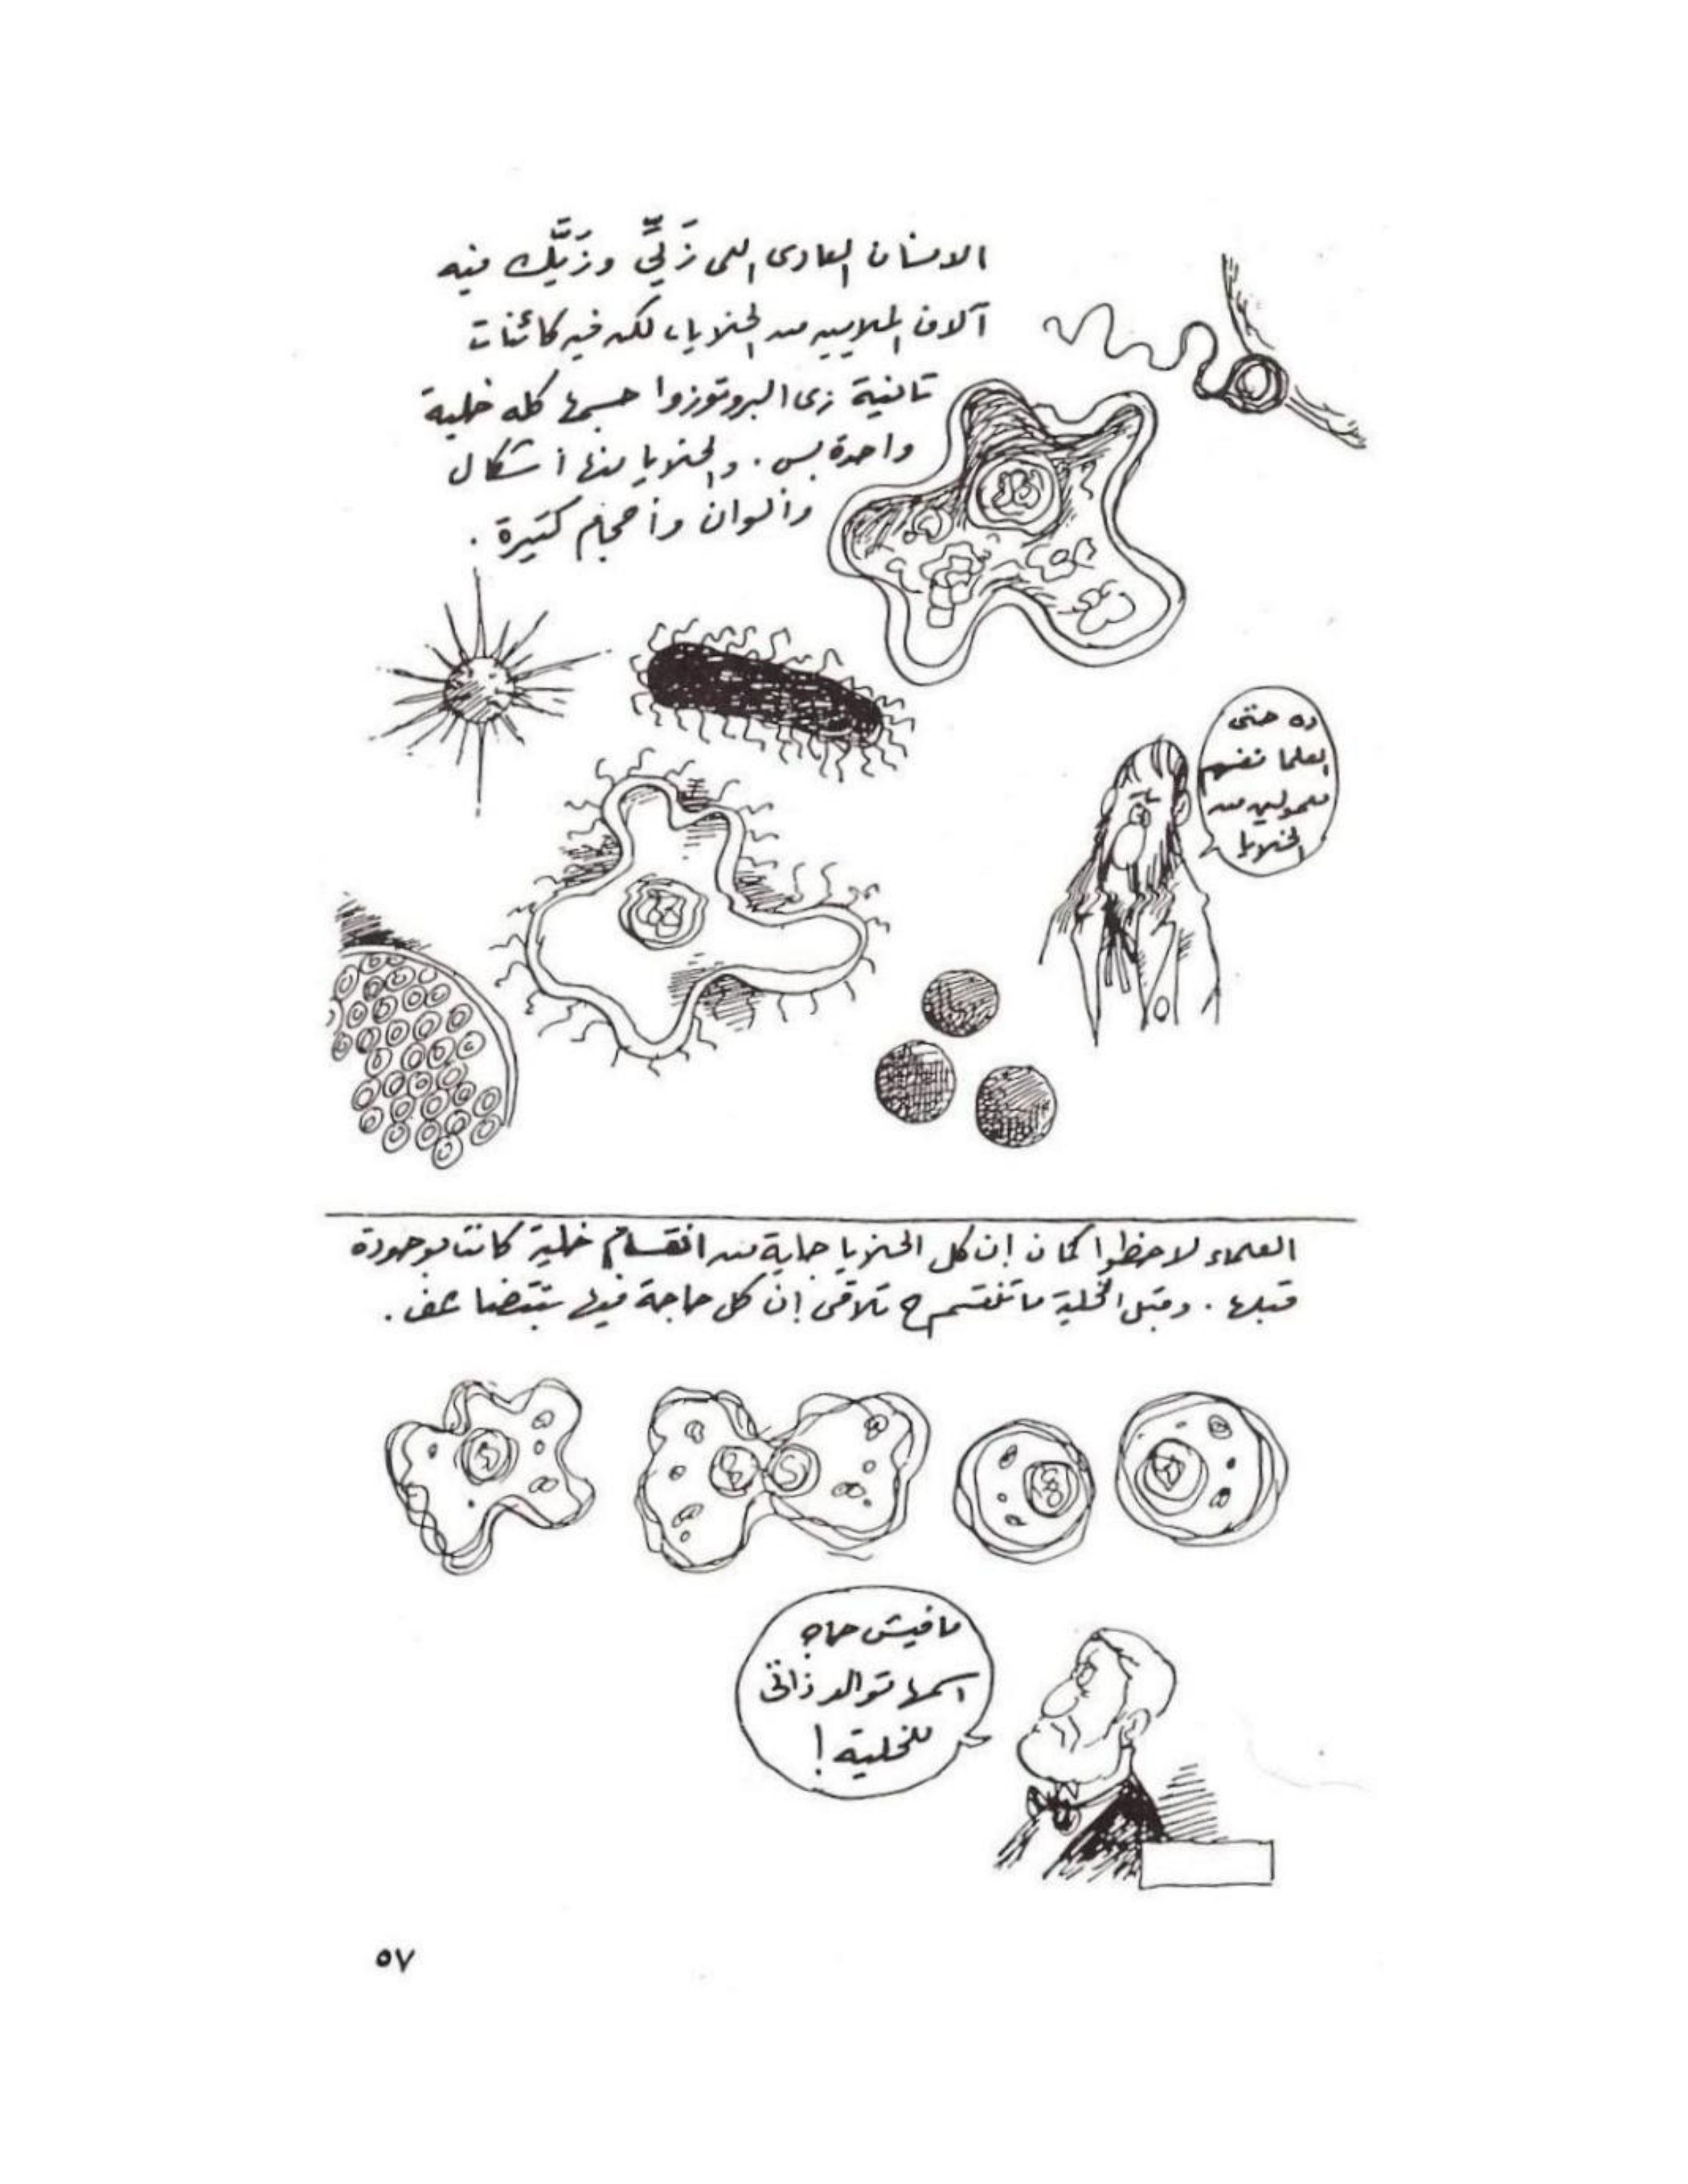 الانسان العادى اللى زَيِّي وزَيَّك فيه
آلاف الملايين من الخلايا، لكن فيه كائنات
تانية زى البروتوزوا جسمها كله خلية
واحدة بس. والخلايا منها أشكال
وألوان وأحجام كتيرة.
ده حتى
العلما نفسهم
معمولين من
الخلايا
العلماء لاحظوا كمان إن كل الخلايا جاية من انقسام خلية كانت موجودة
قبلها. وقبل الخلية ما تنقسم ح تلاقى إن كل حاجة فيها بتتضاعف.
مافيش حاجه
اسمها توالد ذاتى
للخلية!
٥٧